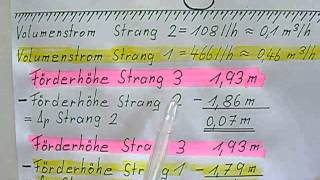 Volumenstrom Strang 2 = 108 l/h ≈ 0,1 m³/h
Volumenstrom Strang 1 = 466 l/h ≈ 0,46 m³/h
Förderhöhe Strang 3 1,93 m
- Förderhöhe Strang 2 - 1,86 m
= Δp Strang 2 0,07 m
Förderhöhe Strang 3 1,93 m
- Förderhöhe Strang 1 - 1,79 m